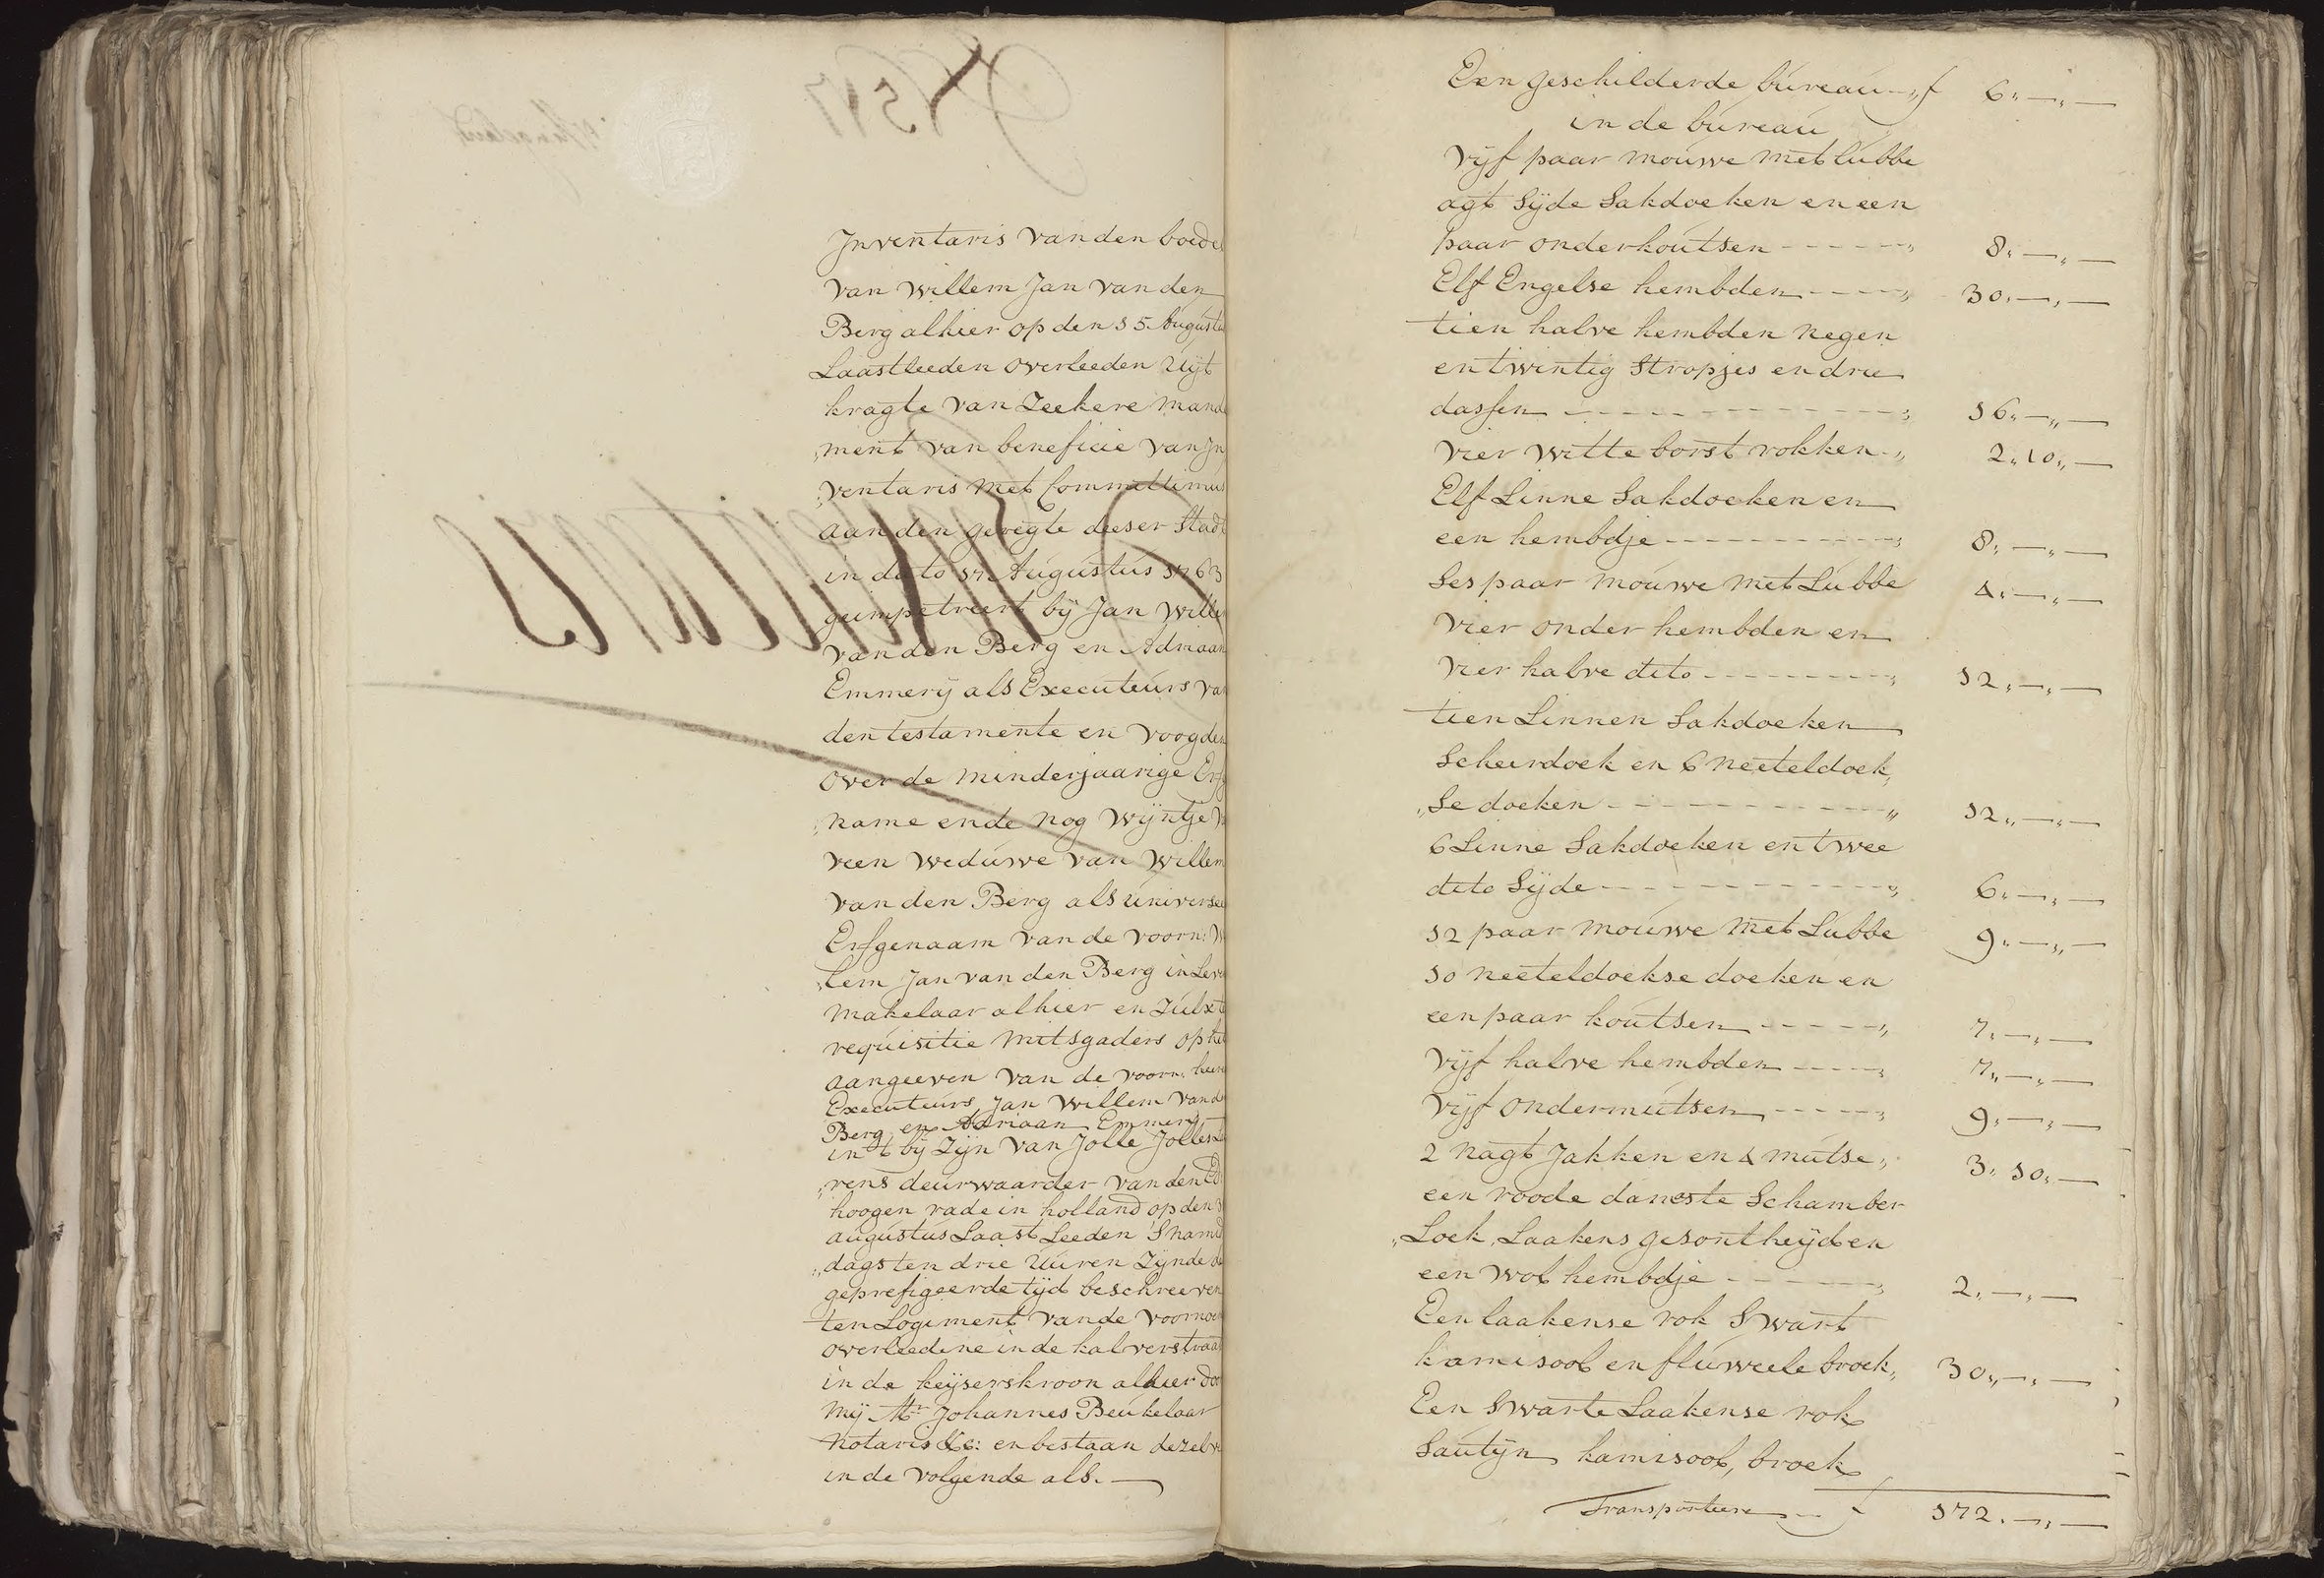 Inventaris van den boedel
van Willem Jan van den
Berg alhier op den 15 Augusti
Laastleeden overleeden Uijt
kragte van Zeekere mand
„ment van beneficie van In
„ventaris met Committimus
aan den geregte deeser Stad
in dato 17 Augustus 1763
geimpetreert bij Jan Wille
van den Berg en Adriaan
Emmerij als Executeurs va
den testamente en voogden
over de minderjaarige Erf
„name ende nog Wijntje
veen weduwe van Willem
van den Berg als universee
Erfgenaam van de voorn: W
„lem Jan van den Berg in Lev
Makelaar alhier en Zulx t
requisitie mitsgaders op he
aangeeven van de voorn: heere
Executeurs Jan Willem van d
Berg en Adriaan Emmerij
in 't bij Zijn van Jolle Jolles
„rens deurwaarder van den Ed
hoogen rade in holland op den
augustus Laast Leeden S namid
„dags ten drie Uuren Zijnde de
geprefigeerde tijd beschreeven
ten Logiment vande voornoe
overleedene in de kalverstraat
in de keijserskroon alhier doo
mij Mr. Johannes Beukelaar
Notaris &c: en bestaan dezelve
in de volgende als.
Een geschilderde bureau „ f 6„—„—
in de bureau
Vijf paar mouwe met lubbe
agt Sijde Sakdoeken en een
paar onderkoutsen - - - - - „ 8„—„—
Elf Engelse hembden - - - - „ 30„—„—
tien halve hembden negen
en twintig Stropjes en drie
dassen - - - - - - - - - - „ 16„—„—
Vier witte borst rokken „ 2„10„—
Elf Linne Sakdoeken en
een hembdje - - - - - - - - „ 8„—„—
Ses paar mouwe met Lubbe 4„—„—
Vier onder hembden en
vier halve dito - - - - - - - „ 12„—„—
tien Linnen Sakdoeken
Scheerdoek en 6 neeteldoek„
„Se doeken - - - - - - - - - „ 12„—„—
6 Linne Sakdoeken en twee
dito Sijde - - - - - - - - - „ 6„—„—
12 paar mouwe met Lubbe 9„—„—
10 neeteldoekse doeken en
een paar koutsen - - - - - „ 7„—„—
Vijf halve hembden - - - - „ 7„—„—
Vijf ondermutsen - - - - - „ 9„—„—
2 Nagt Jakken en 4 mutse„ 3„10„—
een roode damaste Schamber
„Loek, Laakens gesontheijd en
een wol hembdje - - - - - - „ 2„—„—
Een laakense rok Swart
kamisool en fluweele broek„ 30„—„—
Een Swarte Laakense rok
Sautijn kamisool, broek
Transporteere - - f 172„—„—